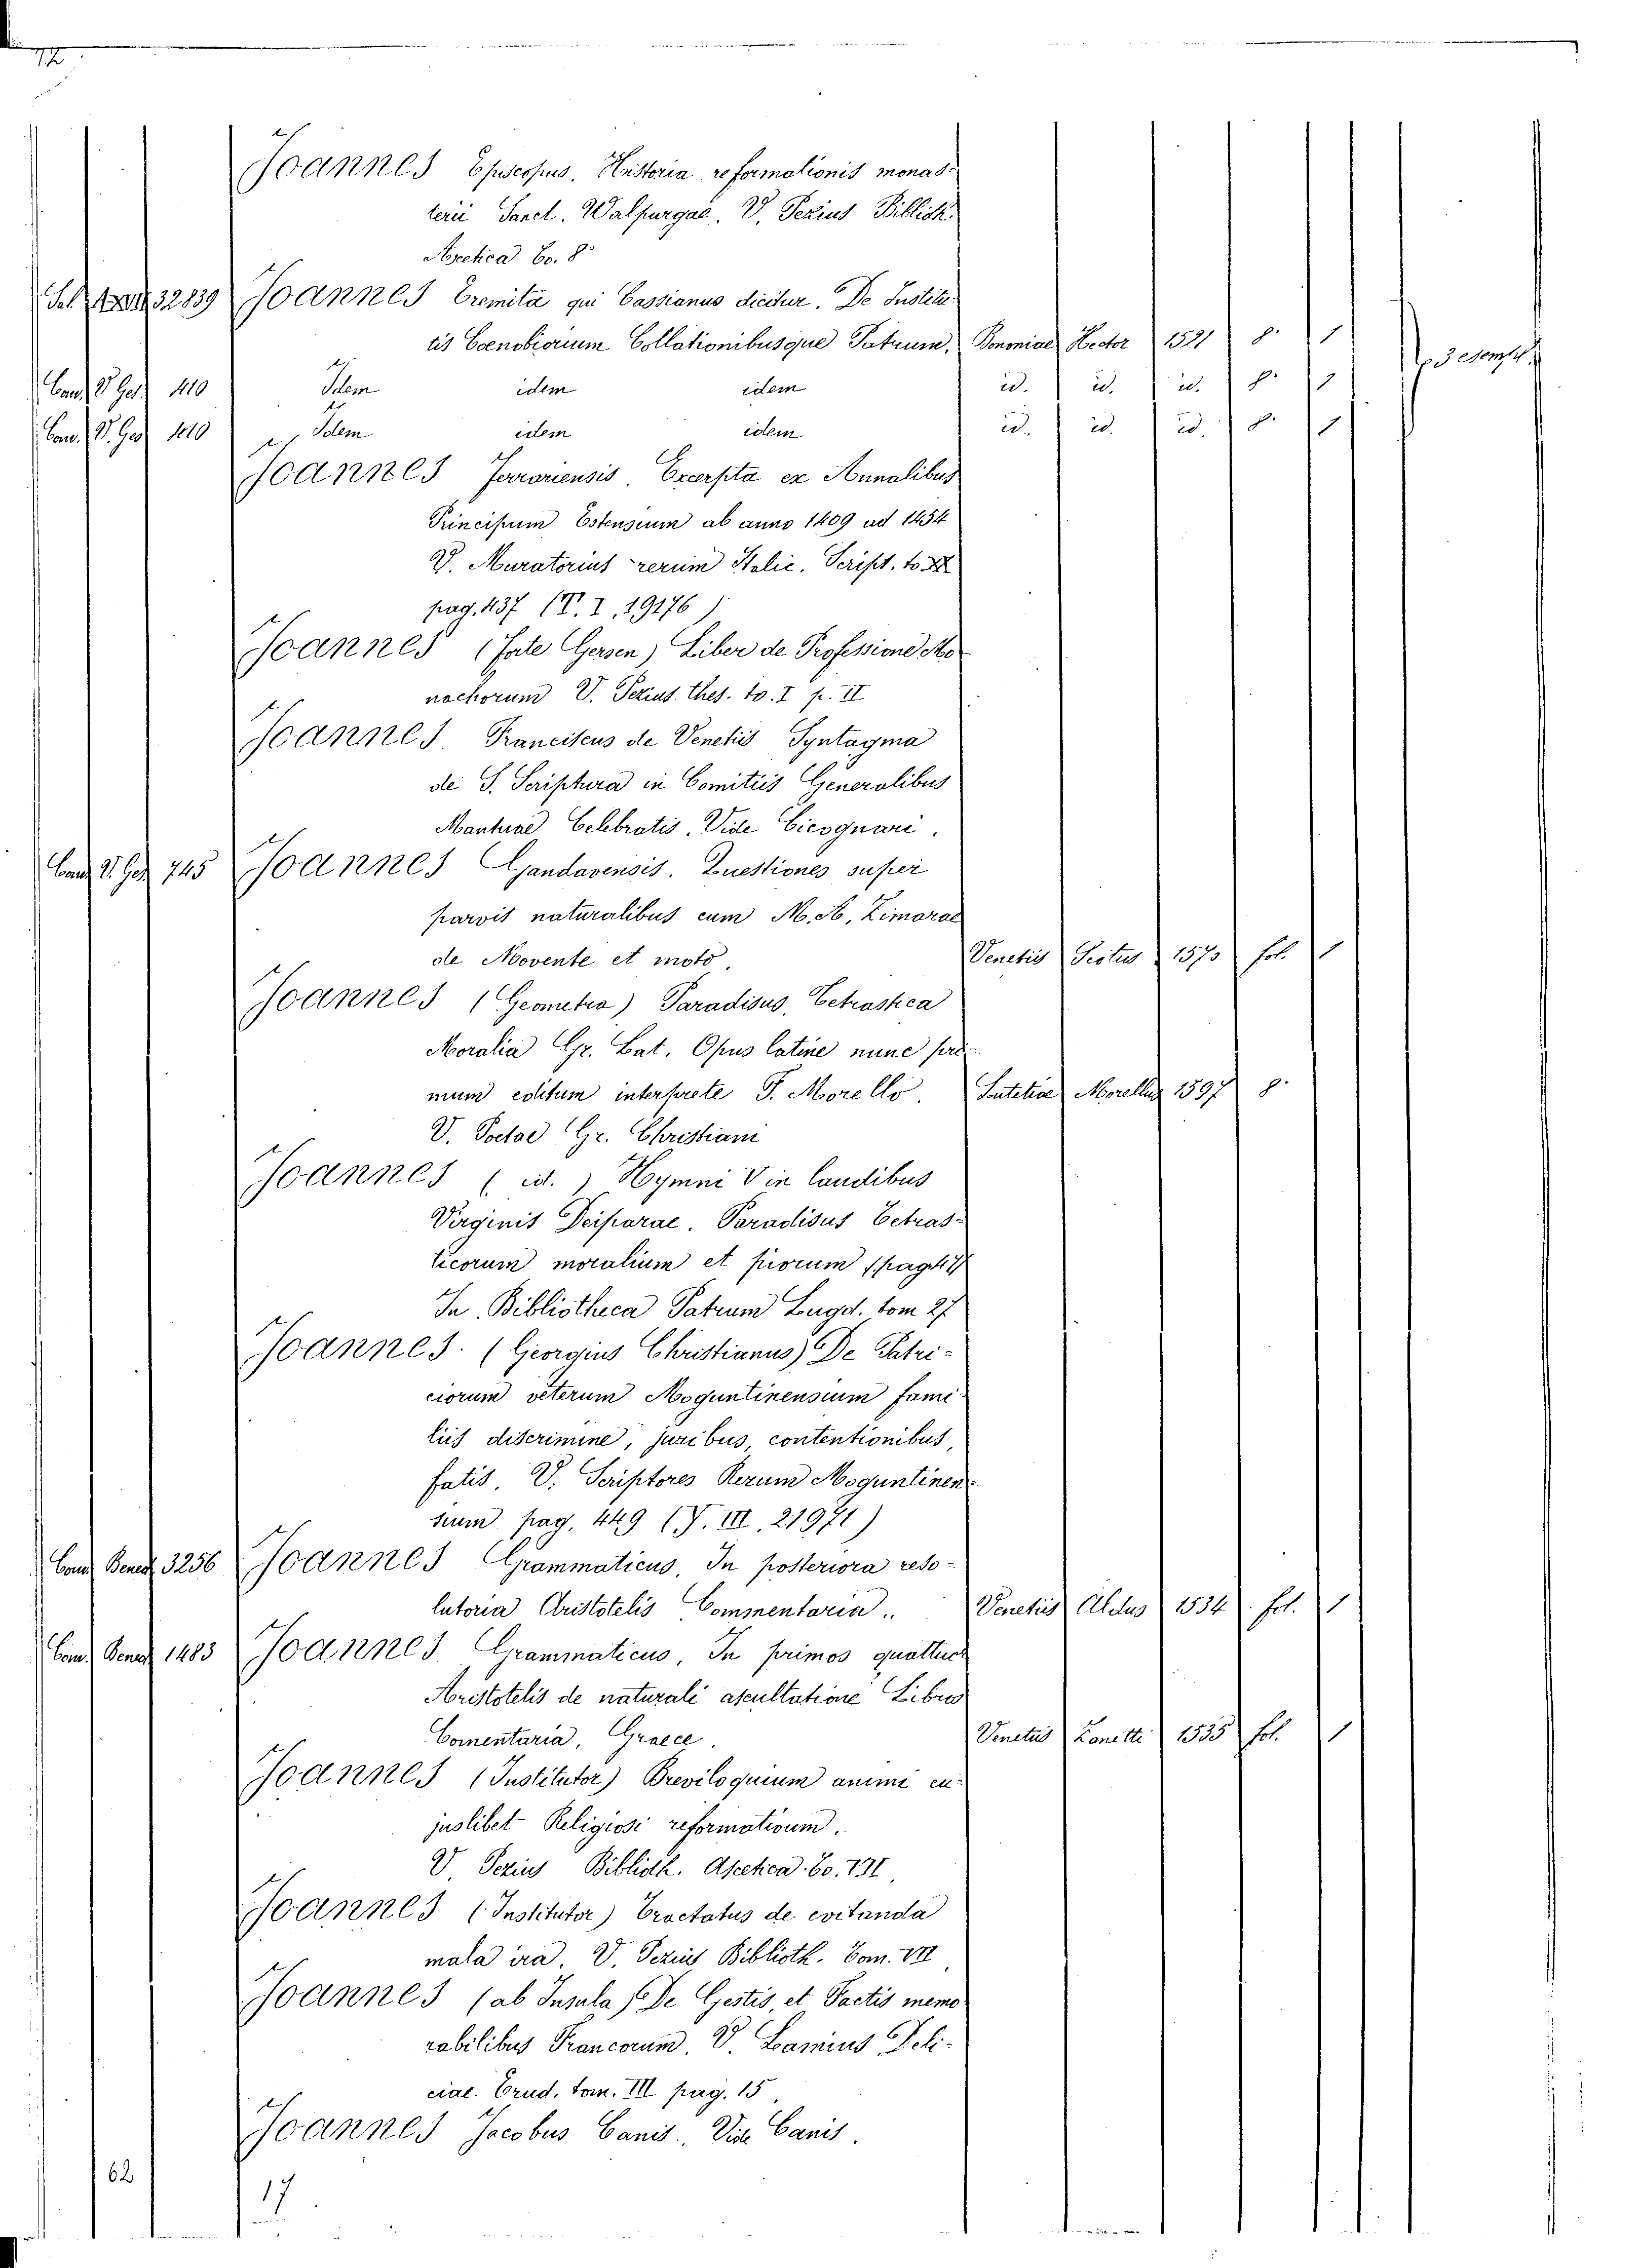 72
Joannes Episcopus. Historia reformationis monas-
terii Sanct. Walpurgae. V. Pezius Biblioth.
Ascetica to. 8°
32839 Joannes Eremita qui Cassianus dicitur. De Institu-
tis Coenobiorum Collationibusque Patrum. Bononiae Hector 1521 8. 1
3 esempl.
Can. V. Ges. 410 Idem idem idem id. id. id. 8. 1
Can. V. Ges. 410 Idem idem idem id. id. id. 8. 1
Joannes Ferrariensis. Excerpta ex Annalibus
Principum Estensium ab anno 1409 ad 1454
V. Muratorius rerum Italic. Script. to XX
pag. 437 (V. I, 19176)
Joannes (Forte Gersen) Liber de Professione Mo
nachorum V. Pezius thes. to. I p. II
Joannes Franciscus de Venetiis Syntagma
de S. Scriptura in Comitiis Generalibus
Mantuae Celebratis. Vide Cicognari.
Can. V. Ges. 745 Joannes Gandavensis. Questiones super
parvis naturalibus cum M. A. Zimarae
de Movente et moto. Venetiis Scotus 1570 fol. 1
Joannes (Geometra) Paradisus, Tetrastica
Moralia Gr. Lat. Opus latine nunc pri-
mum editum interprete F. Morello. Lutetiae Morellus 1597 8.
V. Poetae Gr. Christiani
Joannes (id.) Hymni V in laudibus
Virginis Deiparae. Paradisus Tetras-
ticorum moralium et piorum
In Bibliotheca Patrum Lugd. tom 27
Joannes. (Georgius Christianus) De Patri-
ciorum veterum Moguntinensium fami-
liis discrimine, juribus, contentionibus,
fatis. V. Scriptores Rerum Moguntinen-
sium pag. 449 (V. III, 21971)
Can. Bened. 3256 Joannes Grammaticus, In posteriora reso-
lutoria Aristotelis Commentaria. Venetiis Aldus 1534 fol. 1
Can. Bened. 1483 Joannes Grammaticus, In primos quattuor
Aristotelis de naturali ascultatione Libros
Comentaria, Graece. Venetiis Zanetti 1535 fol. 1
Joannes (Institutor) Breviloquium animi cu-
juslibet Religiosi reformativum.
V. Pezius Biblioth. Ascetica. to. VII.
Joannes (Institutor) Tractatus de evitanda
mala ira. V. Pezius Biblioth. Tom. VII
Joannes (ab Insula) De Gestis, et Factis memo
rabilibus Francorum. V. Lamius Deli-
ciae. Erud. tom. III pag. 15.
Joannes Jacobus Canis. Vide Canis.
62
17